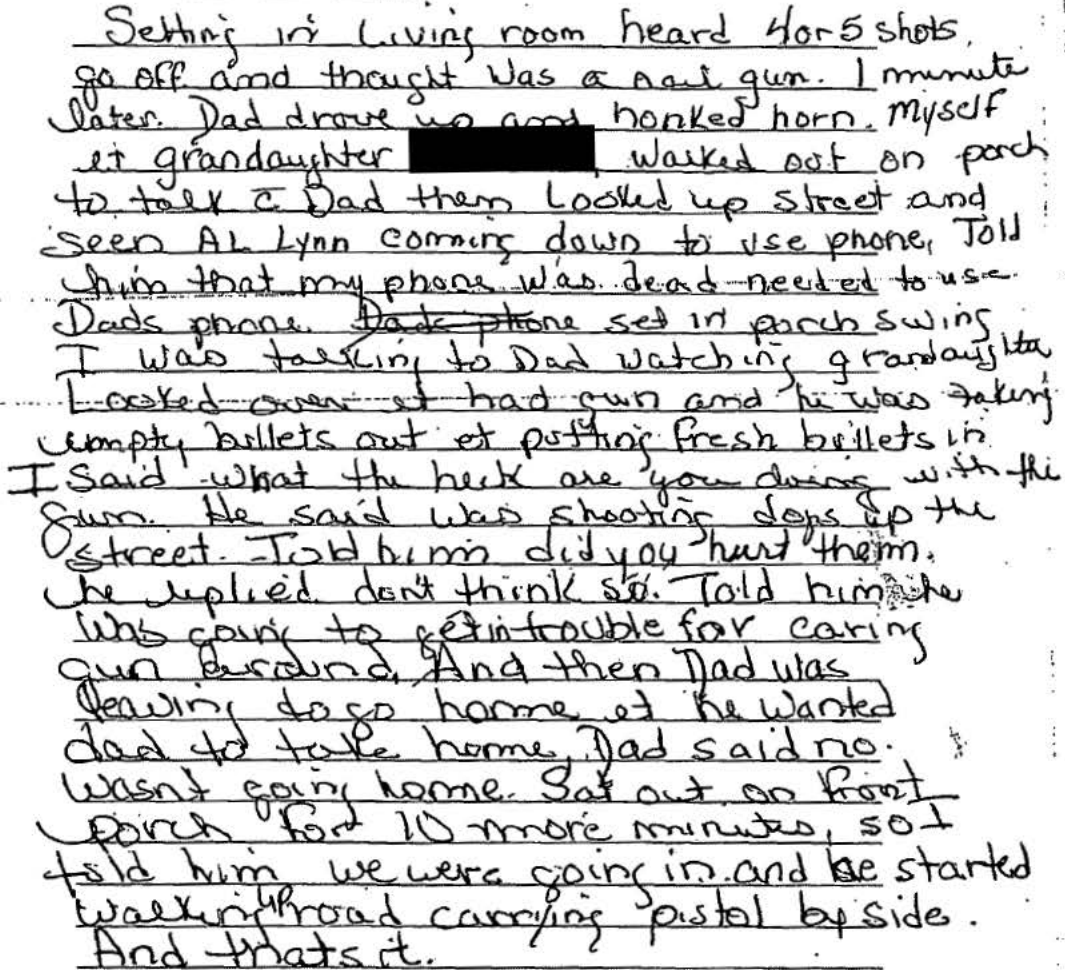 Setting in Living room heard 4or5 shots
go off and thought was a nail gun. 1 minute
later. Dad drove up and honked horn. Myself
et grandaughter walked out on porch
to talk c̄ Dad them Looked up street and
seen AL Lynn coming down to use phone, Told
him that my phone was dead needed to use
Dads phone. Dads phone set in porch swing
I was talking to Dad watching grandaughter
Looked over et had gun and he was taking
empty bullets out et putting fresh bullets in
I said what the heck are you doing with the
gun. He said was shooting dogs up the
street. Told him did you hurt them.
he replied don't think so. Told him he
was going to get in trouble for caring
gun around. And then Dad was
leaving to go home et he wanted
dad to take home, Dad said no.
wasnt going home. Sat out on front
porch for 10 more minutes, so I
told him we were going in. and he started
walking up road carrying pistol by side.
And thats it.